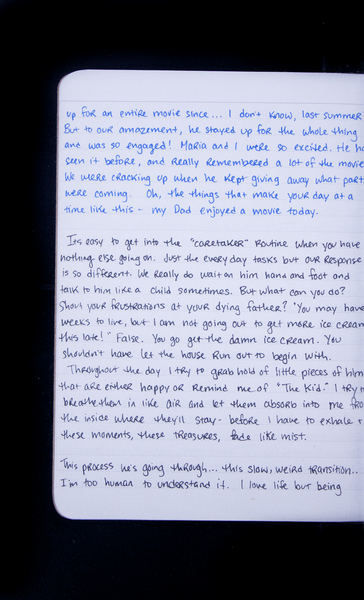 up for an entire movie since... I don't know, last summer
But to our amazement, he stayed up for the whole thing
and was so engaged! Maria and I were so excited. He ha
seen it before, and really remembered a lot of the movie
We were cracking up when he kept giving away what part
were coming. Oh, the things that make your day at a
time like this - my Dad enjoyed a movie today.
Its easy to get into the "caretaker" routine when you have
nothing else going on. Just the everyday tasks but our response
is so different. We really do wait on him hand and foot and
talk to him like a child sometimes. But what can you do?
Shout your frustrations at your dying father? "You may have
weeks to live, but I am not going out to get more ice cream
this late!" False. You go get the damn ice cream. You
shouldn't have let the house run out to begin with.
Throughout the day I try to grab hold of little pieces of him
that are either happy or remind me of "The Kid." I try t
breathe them in like air and let them absorb into me fro
the inside where they'll stay - before I have to exhale
these moments, these treasures, fade like mist.
This process he's going through... this slow, weird transition...
I'm too human to understand it. I love life but being